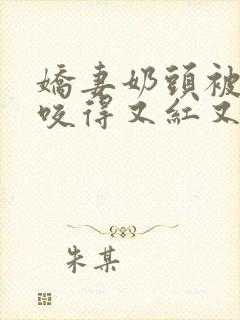 嬌妻奶頭被
咬得又紅又
朱某